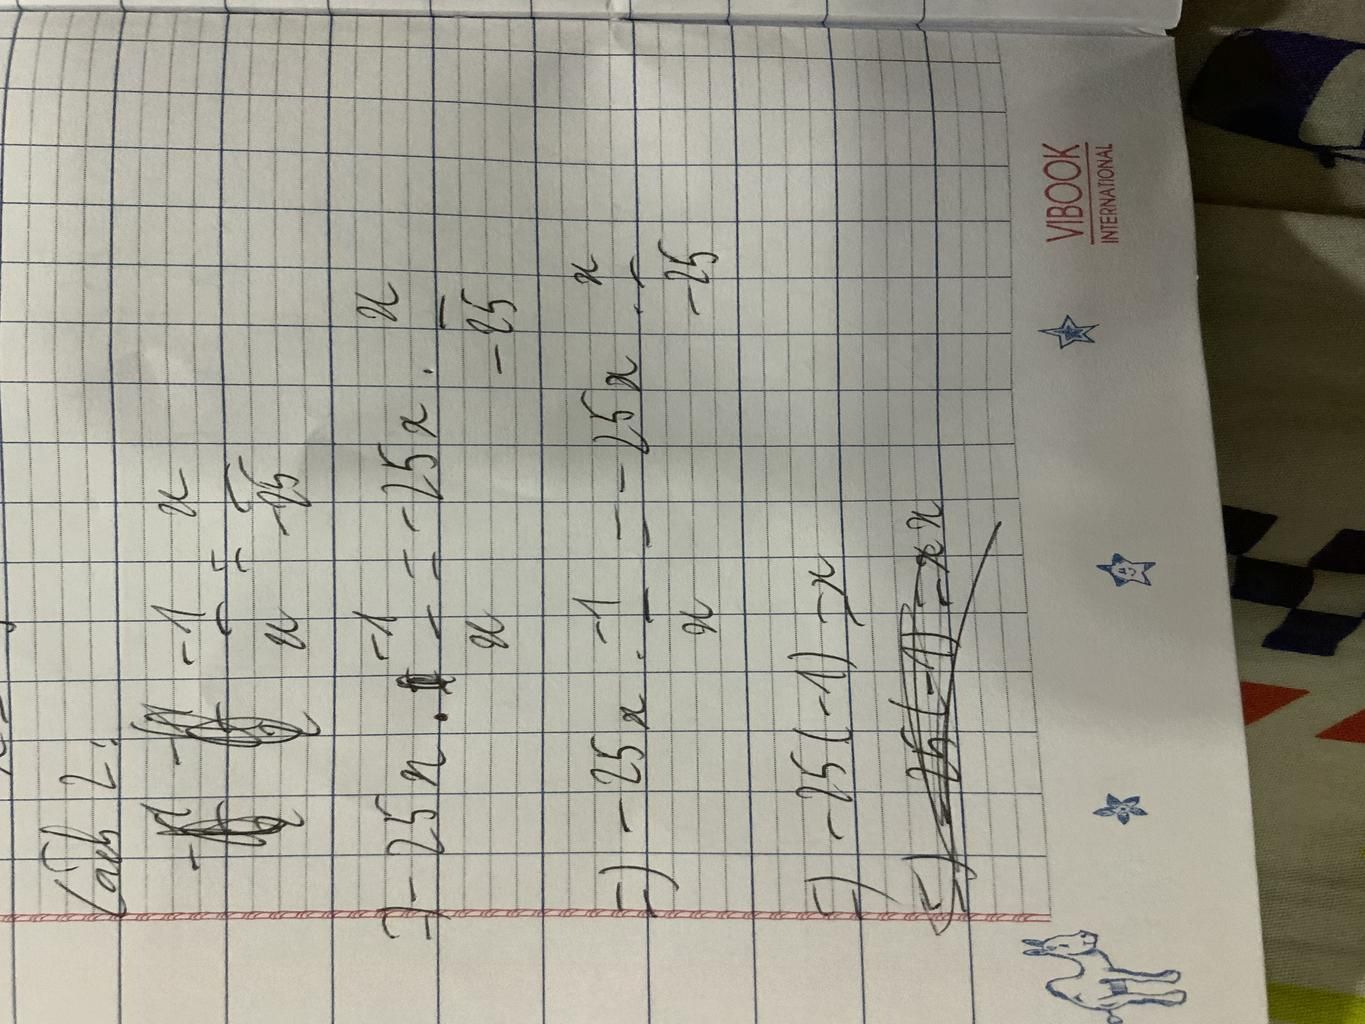 Cách 2:
-1/x = x/-25
=) -25x . -1/x = -25x . x/-25
=) -25x . -1/x = -25x . x/-25
=) -25(-1) = x
VIBOOK
INTERNATIONAL